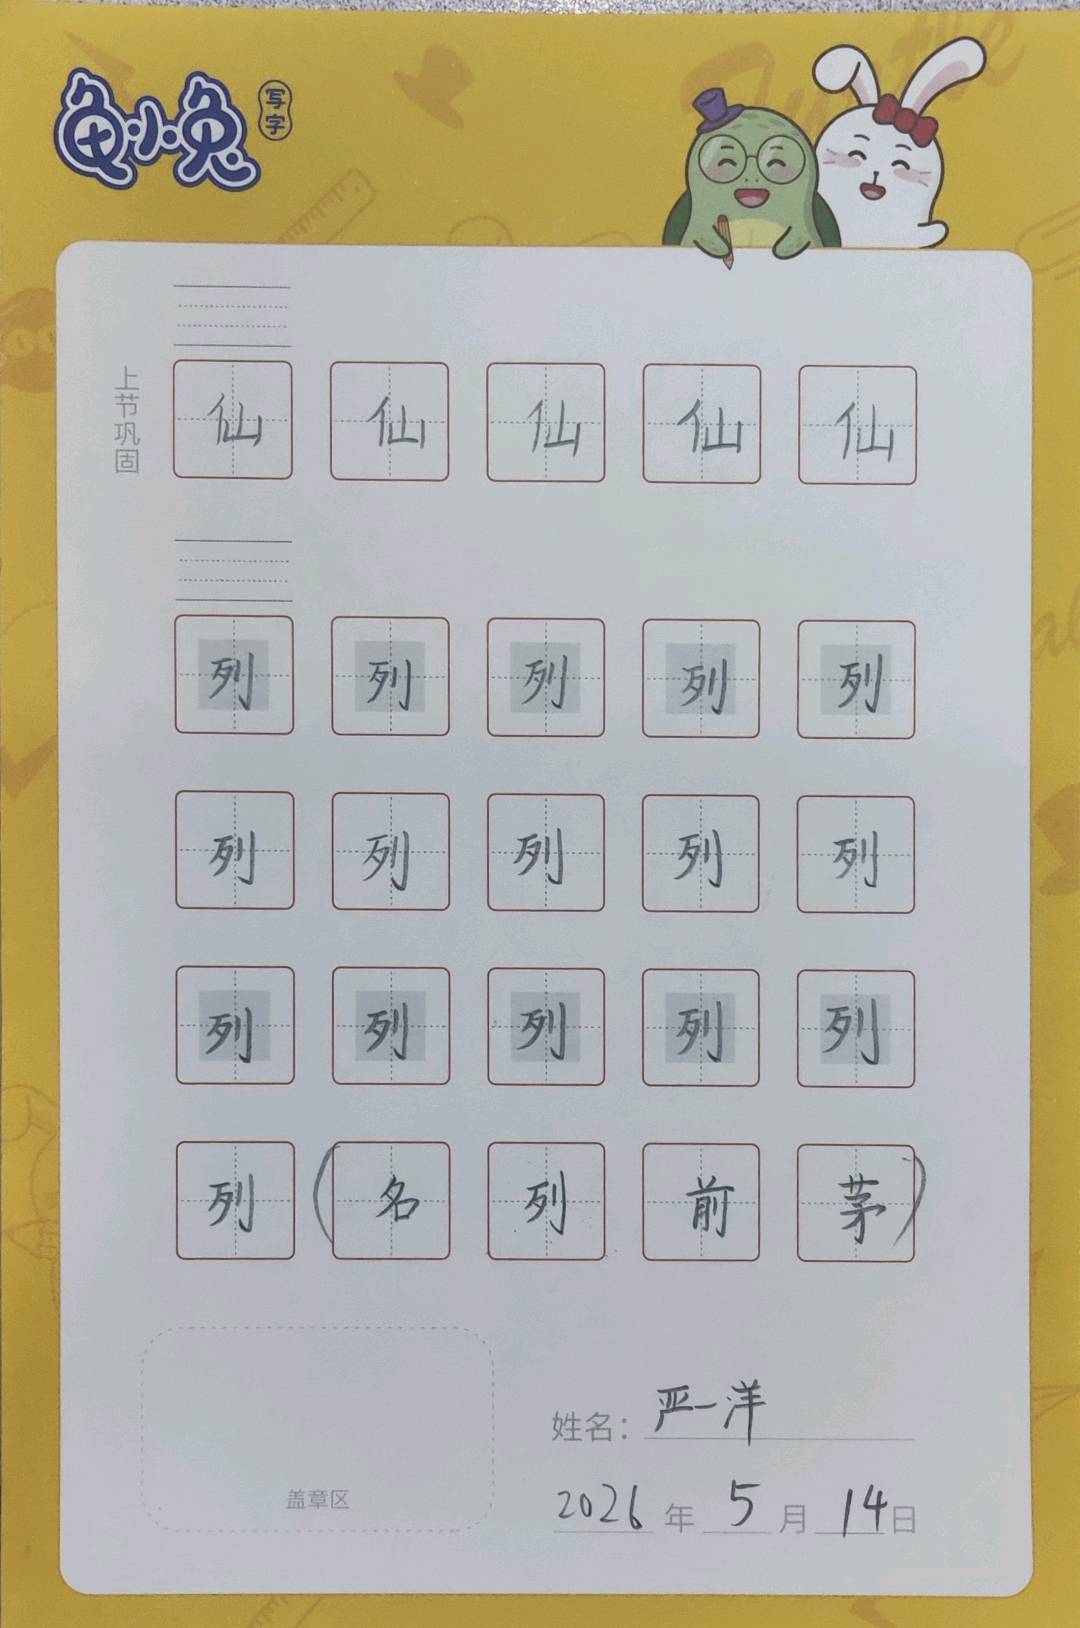 龟小兔
写字
上节巩固
仙 仙 仙 仙 仙
列 列 列 列 列
列 列 列 列 列
列 列 列 列 列
列 (名 列 前 茅)
盖章区
姓名: 严一洋
2026 年 5 月 14 日